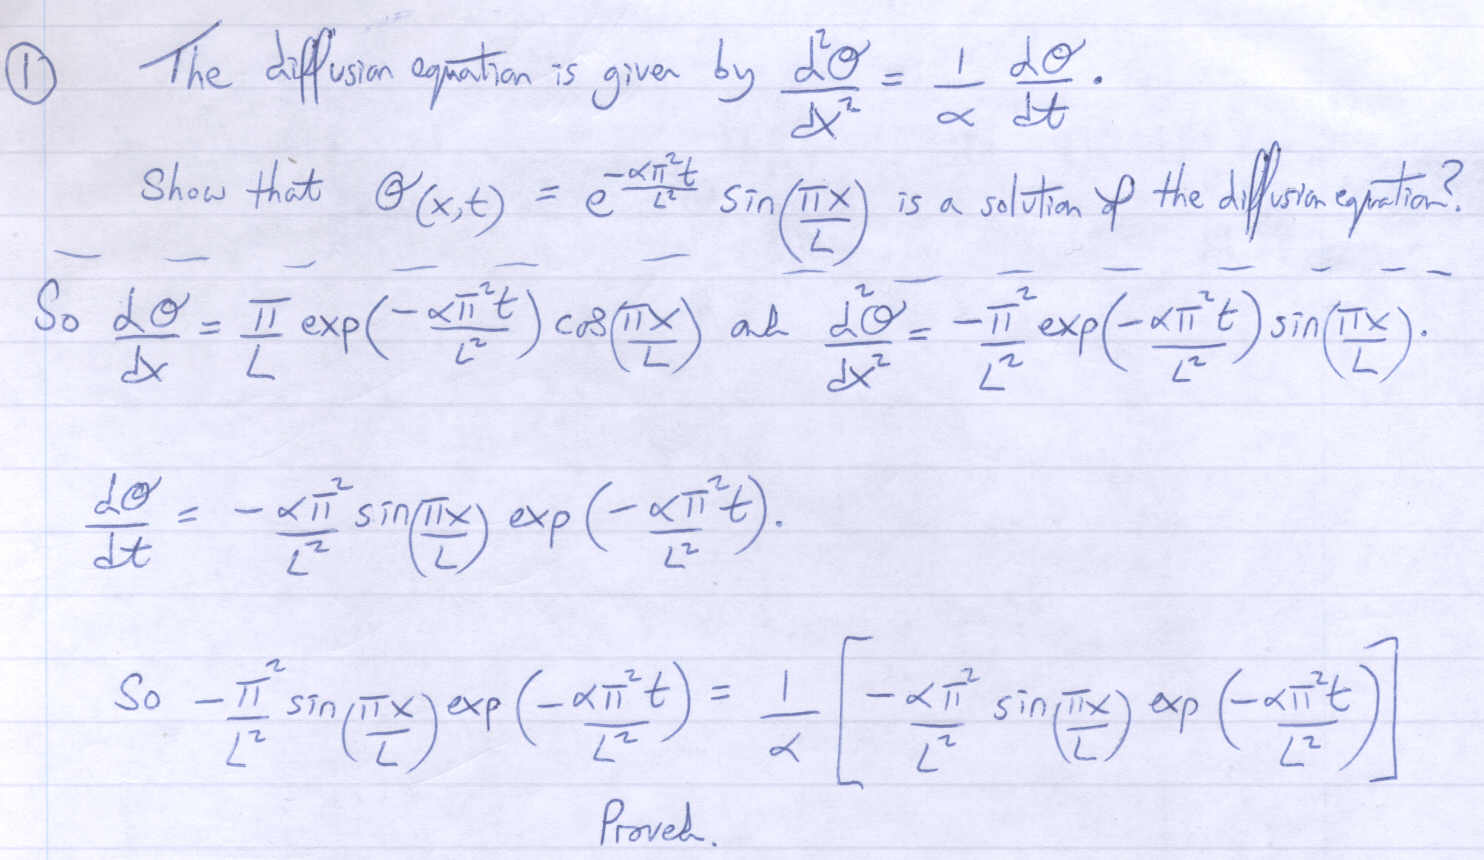 ① The diffusion equation is given by d²θ/dx² = 1/α dθ/dt.
Show that θ(x,t) = e^(-απ²t/L²) sin(πx/L) is a solution of the diffusion equation?
So dθ/dx = π/L exp(-απ²t/L²) cos(πx/L) and d²θ/dx² = -π²/L² exp(-απ²t/L²) sin(πx/L).
dθ/dt = -απ²/L² sin(πx/L) exp(-απ²t/L²).
So -π²/L² sin(πx/L) exp(-απ²t/L²) = 1/α [-απ²/L² sin(πx/L) exp(-απ²t/L²)]
Proved.